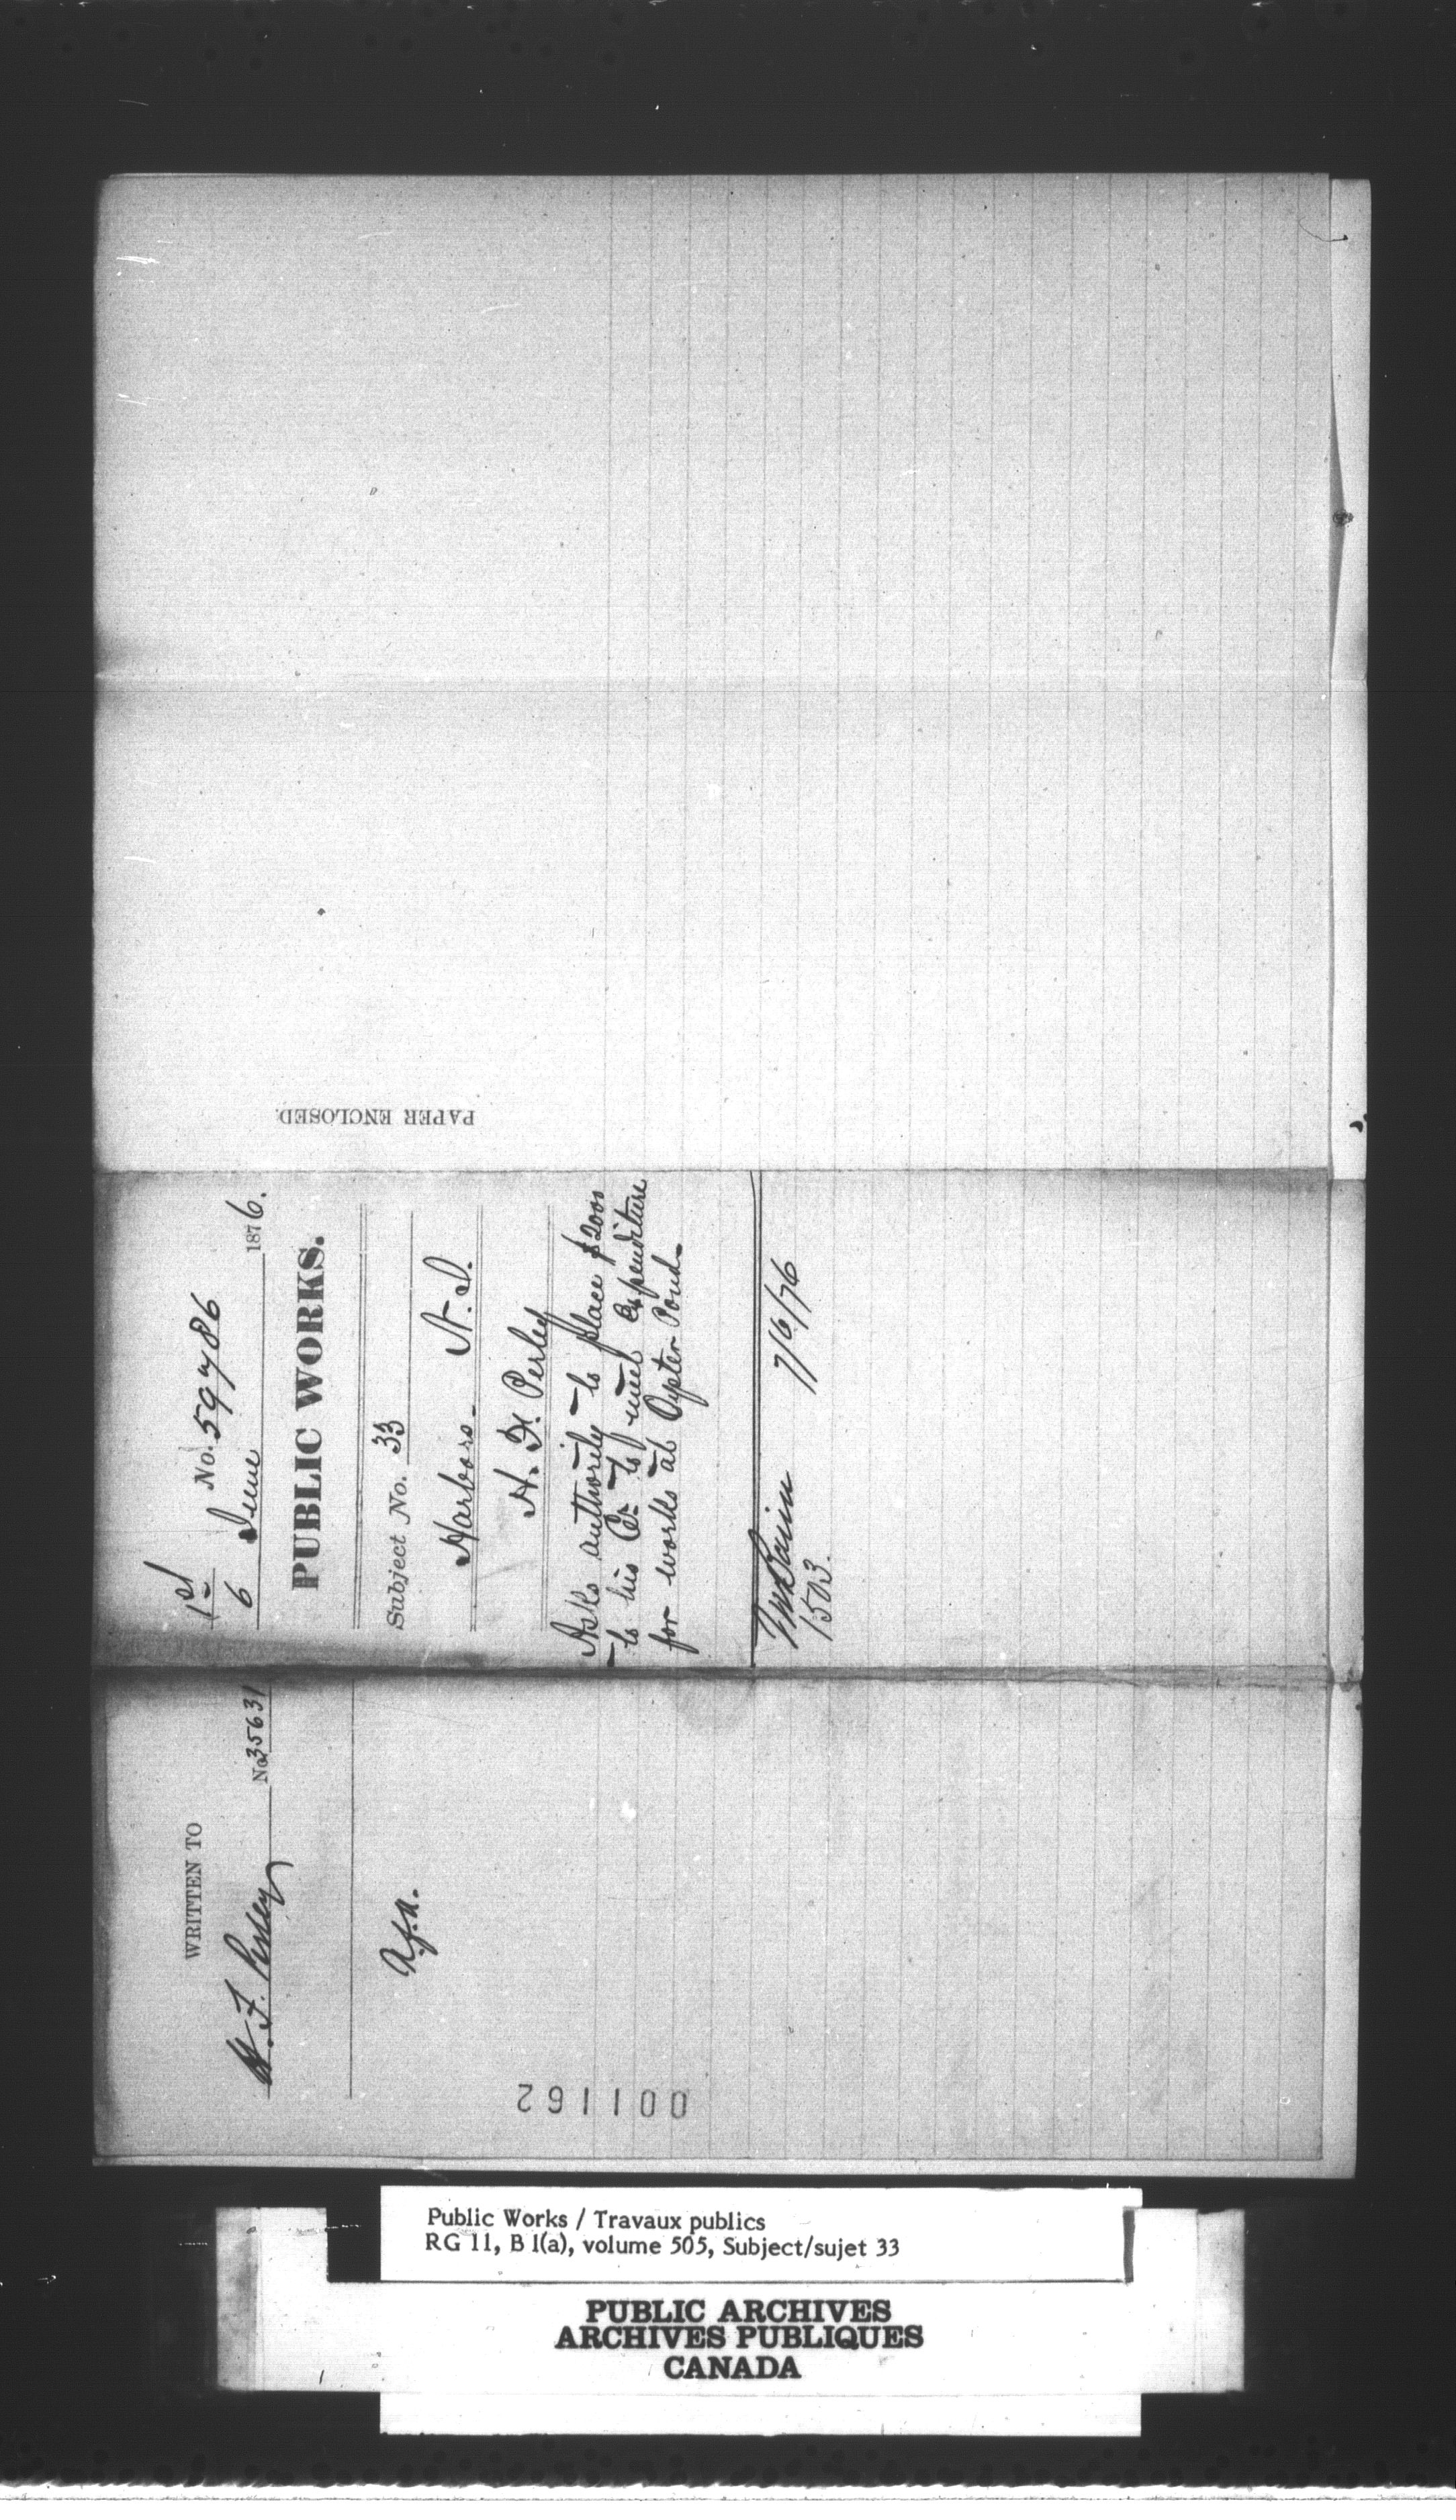 1st No. 59786
6 June 1876.
PUBLIC WORKS.
Subject No. 33
Harbors - N.S.
H. F. Perley
Asks authority to place $2000
to his Cr. to meet expenditure
for works at Oyster Pond.
7/6/76
1503.
PAPER ENCLOSED.
WRITTEN TO
H. F. Perley No. 35631
001162
Public Works / Travaux publics
RG 11, B 1(a), volume 505, Subject/sujet 33
PUBLIC ARCHIVES
ARCHIVES PUBLIQUES
CANADA